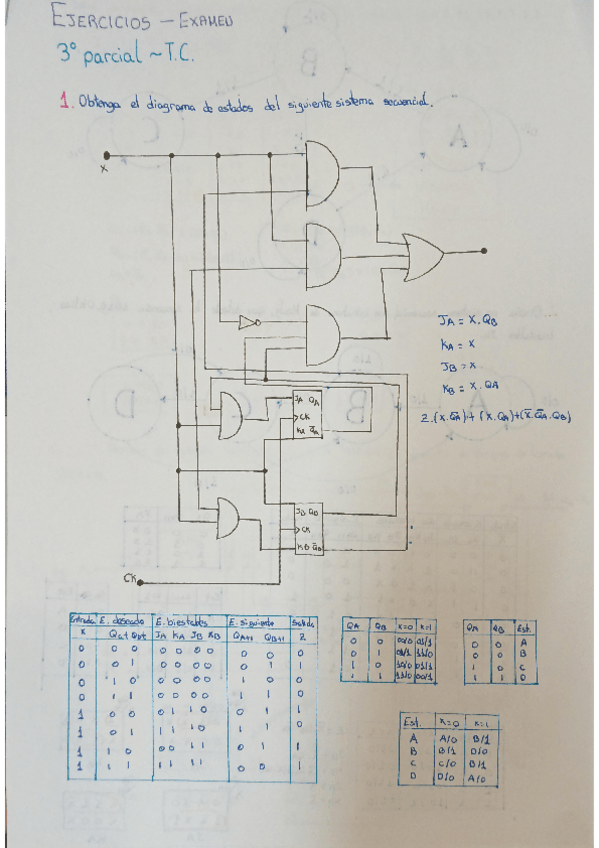 EJERCICIOS - EXAMEN
3º parcial ~ T.C.
1. Obtenga el diagrama de estados del siguiente sistema secuencial.
X
JA = X.QB
KA = X
JB = X
KB = X.QA
Z.(X.Q̄A)+(X.QA)+(X̄.Q̄A.QB)
JA QA
CK
KA Q̄A
JB QB
CK
KB Q̄B
CK
Entrada E. deseado E. biestables E. siguiente Salida
X JA KA JB KB QA+1 QB+1 Z
0 0 0 0 0 0 0 0 0 0
0 0 1 0 0 0 0 0 1 1
0 1 0 0 0 0 0 1 0 0
0 1 1 0 0 0 0 1 1 0
1 0 0 0 1 1 0 0 1 1
1 0 1 1 1 1 0 1 1 0
1 1 0 0 0 1 1 0 1 1
1 1 1 1 1 1 1 0 0 1
QA QB X=0 X=1
0 0 00/0 01/1
0 1
1 0
1 1
QA QB Est.
0 0 A
0 1 B
1 0 C
1 1 D
Est. X=0 X=1
A A/0 B/1
B B/1 D/0
C C/0 B/1
D D/0 A/0